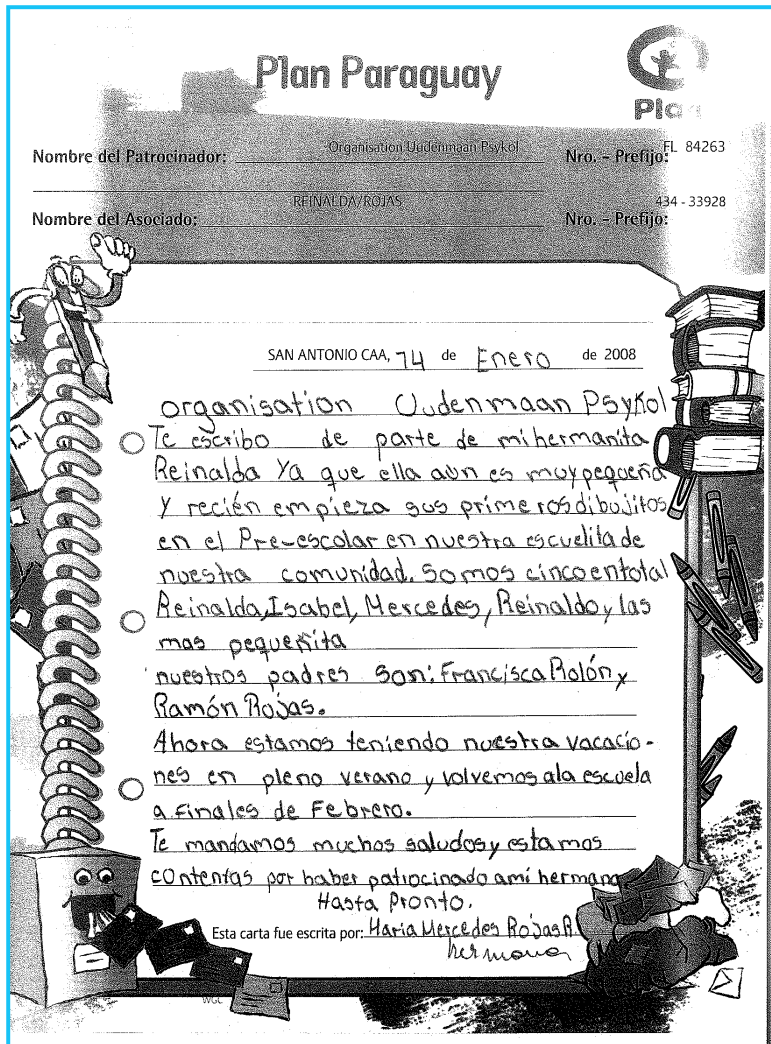 Plan Paraguay
Plan
Nombre del Patrocinador: Organisation Uudenmaan Psykol Nro. - Prefijo: FL 84263
Nombre del Asociado: REINALDA/ROJAS Nro. - Prefijo: 434 - 33928
SAN ANTONIO CAA, 14 de Enero de 2008
organisation Uudenmaan Psykol
Te escribo de parte de mi hermanita
Reinalda Ya que ella aun es muy pequeña
Y recién empieza sus primeros dibujitos
en el Pre-escolar en nuestra escuelita de
nuestra comunidad. Somos cinco en total
Reinalda, Isabel, Mercedes, Reinaldo y las
mas pequeñita
nuestros padres Son: Francisca Rolón y
Ramón Rojas.
Ahora estamos teniendo nuestra vacacio-
nes en pleno verano y volvemos ala escuela
a finales de Febrero.
Te mandamos muchos saludos y estamos
contentas por haber patrocinado ami hermana
Hasta Pronto.
Esta carta fue escrita por: Maria Mercedes Rojas R.
hermana
WGC